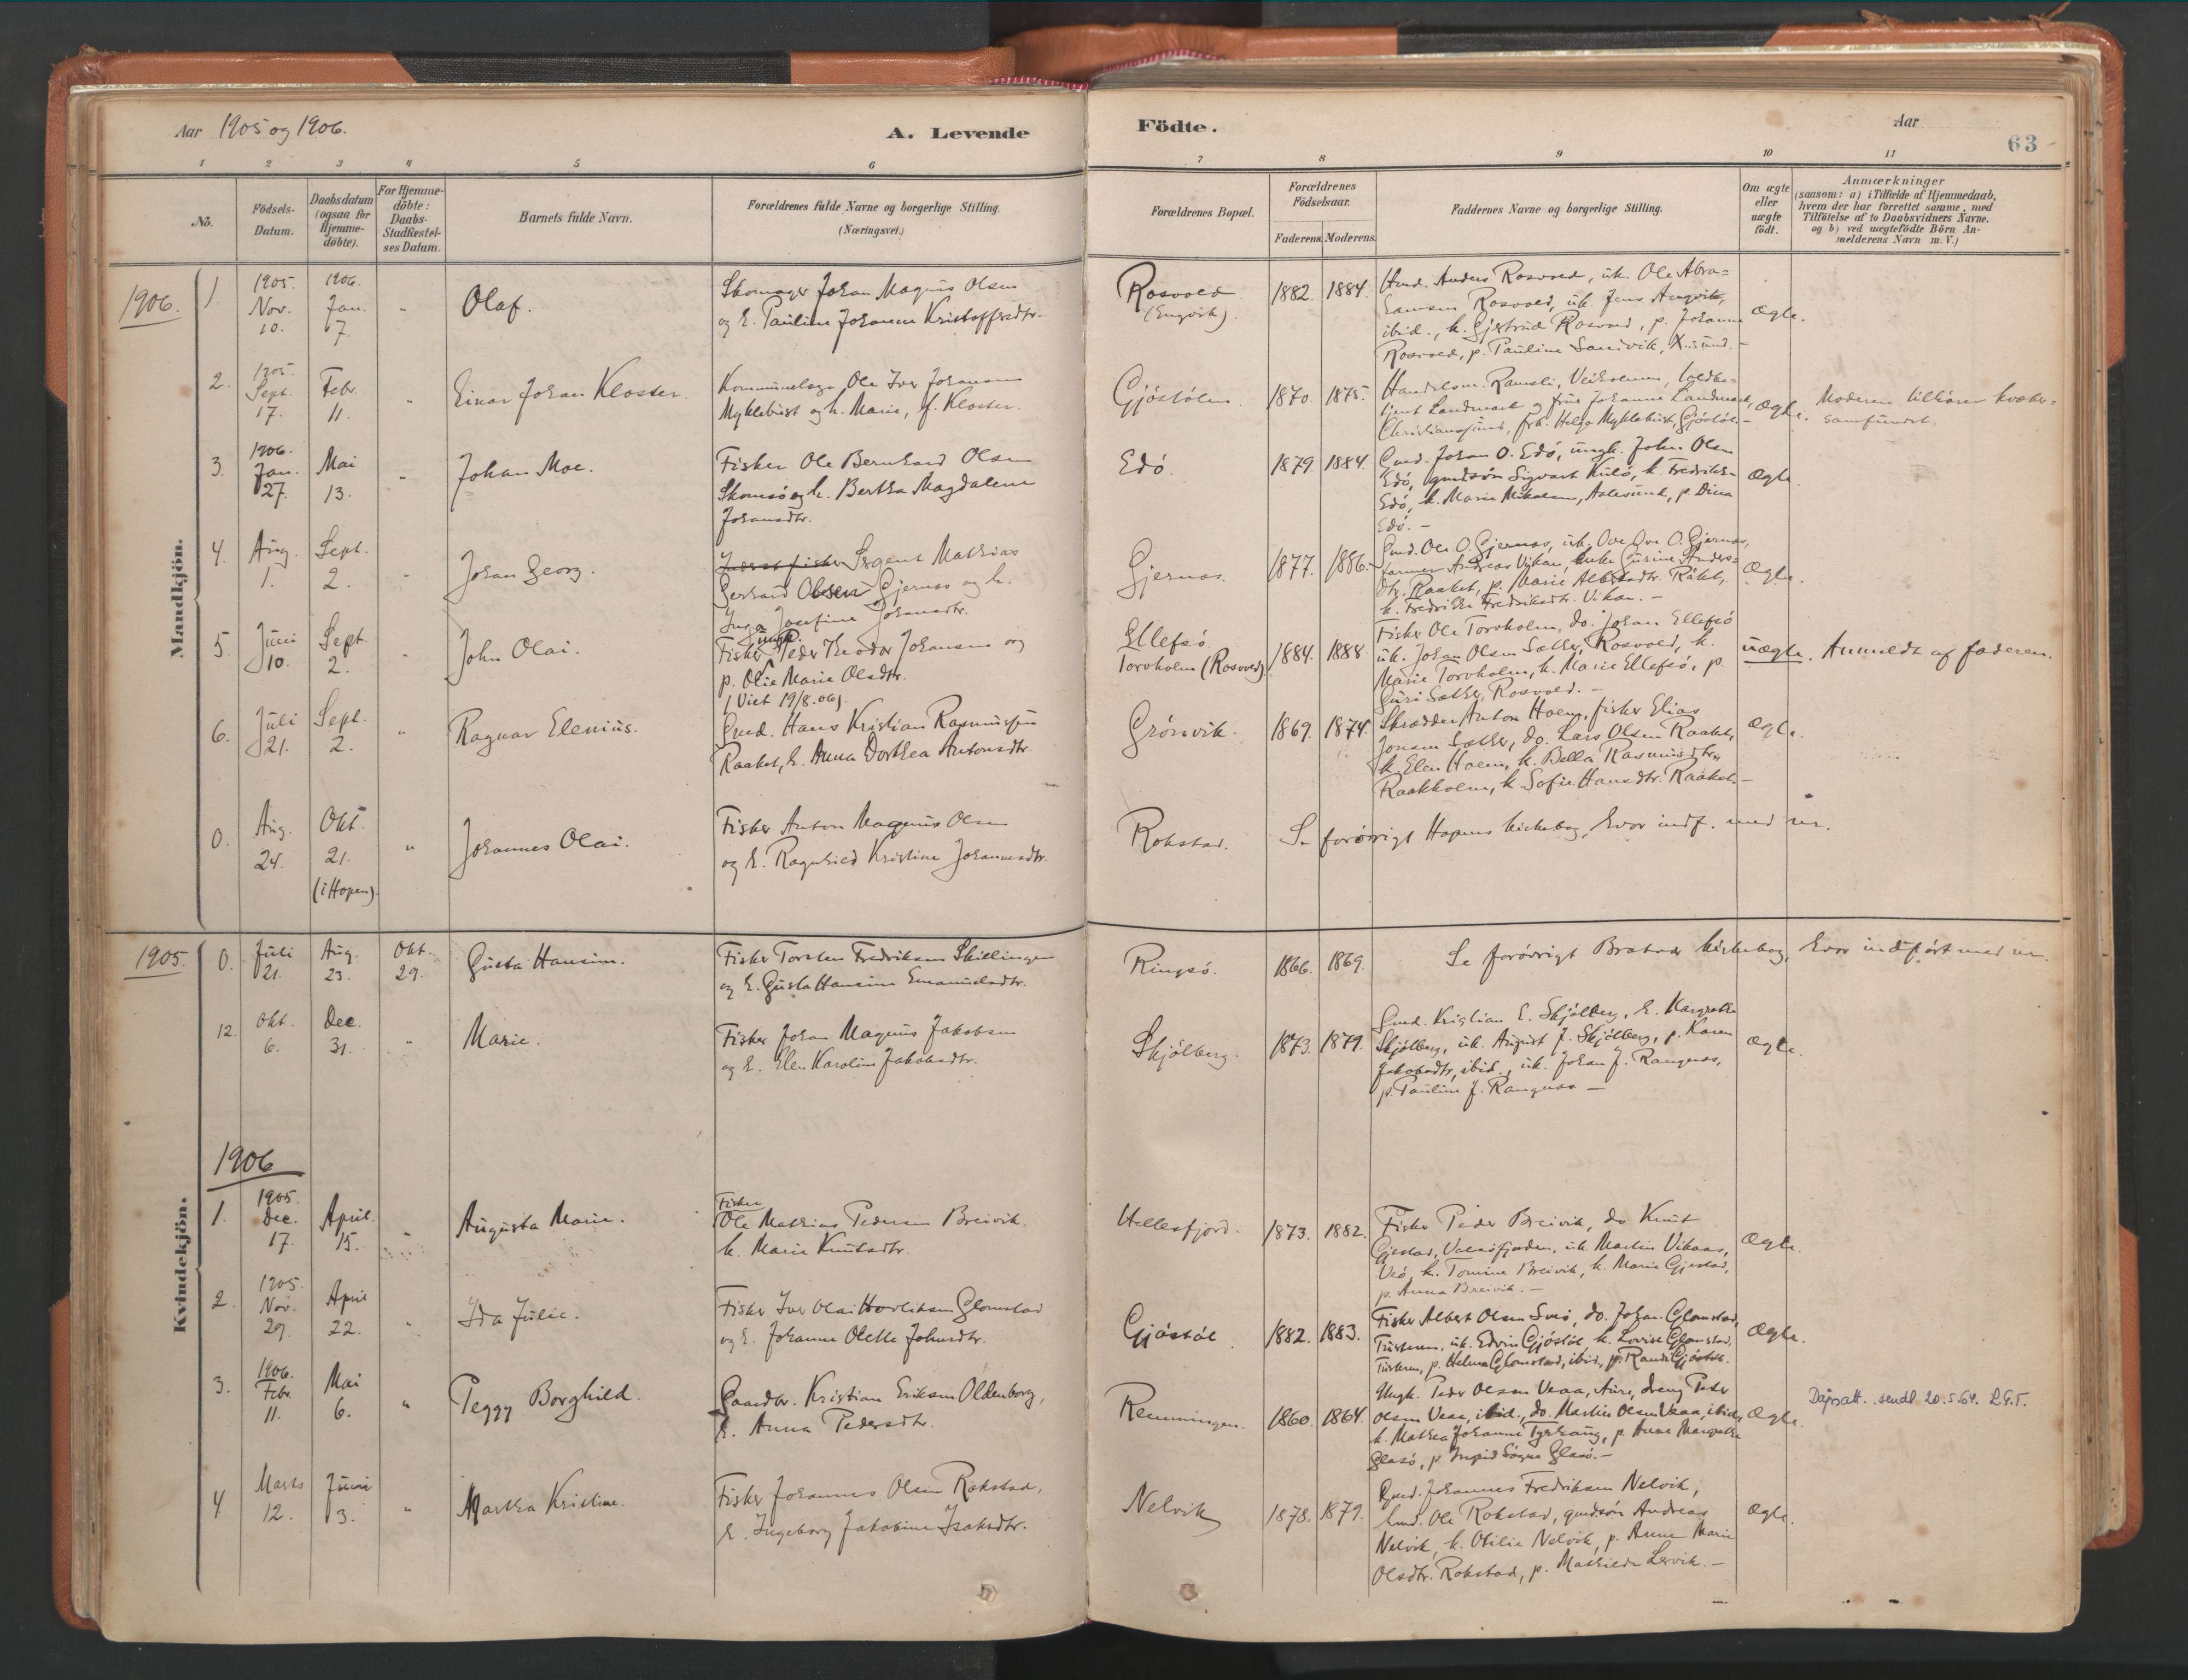 Aar 1905 og 1906.
A. Levende Födte.
Aar
63
1 2 3 4 5 6 7 8 9 10 11
No.
Födsels-Datum.
Daabsdatum (ogsaa for Hjemme-döbte).
For Hjemme-döbte: Daabs-Stadfæstel-ses Datum.
Barnets fulde Navn.
Forældrenes fulde Navne og borgerlige Stilling. (Næringsvei.)
Forældrenes Bopæl.
Forældrenes Födselsaar.
Faderens. Moderens.
Faddernes Navne og borgerlige Stilling.
Om ægte eller uægte födt.
Anmærkninger (saasom: a) i Tilfælde af Hjemmedaab, hvem der har forrettet samme, med Tilföielse af to Daabsvidners Navne. og b) ved uægtefödte Börn An-melderens Navn m. V.)
Mandkjön.
1906.
1. 1905. Nov. 10. 1906. Jan. 7. " Olaf.
Skomager Johan Magnus Olsen
og h. Pauline Johanne Kristoffersdtr.
Rosvold (Engvik). 1882. 1884.
Gmd. Anders Rosvold, uk. Ole Abra=
hamsen Rosvold, uk. Jens Angvik,
ibid., k. Gjertrud Rosvold, p. Johanna
Rosvold, p. Pauline Sandvik, X.sund. –
Ægte.
2. 1905. Sept. 17. Febr. 11. " Einar Johan Kloster.
Kommunelæge Ole Iver Johansen
Myklebust og h. Marie, f. Kloster.
Gjöstölen. 1870. 1875.
Handelsm. Ramsli, Veiholmen, toldbe=
tjent Landmark og frue Johanne Landmark,
Christianssund, frk. Helga Myklebust, Gjöstöl. –
Ægte.
Moderen tilhører kvæker=
samfundet.
3. 1906. Jan. 27. Mai 13. " Johan Moe.
Fisker Ole Bernhard Olsen
Skomsö og h. Bertha Magdalene
Johansdtr.
Edö. 1879. 1884.
Gmd. Johan O. Edö, ungk. John Olsen
Edö, gmdsön Sigvart Kulö, k. Fredrikke
Edö, k. Marie Mikalsen, Aalesund, p. Dina
Edö. –
Ægte.
4. Aug. 1. Sept. 2. " Johan Georg.
Sergent Mathias
Gerhard Olsen Gjernes og h.
Inga Josefine Johansdtr.
Gjernes. 1877. 1886.
Gmd. Ole O. Gjernes, uk. O. Gjernes,
farmer Andreas Vikan, enke Gurine Anders=
dtr. Raaket, p. Marie Albertsdtr. Råket,
k. Fredrikke Fredriksdtr. Vikan. –
Ægte.
5. Juni 10. Sept. 2. " John Olai.
ungk.
Fisker Peder Theodor Johansen og
p. Olie Marie Olsdtr.
(Viet 19/8.06).
Ellefsö
Torvholm (Rosvold) 1884. 1888.
Fisker Ole Torvholm, do. Johan Ellefsö
uk. Johan Olsen Sæther, Rosvold, k.
Marie Torvholm, k. Marie Ellefsö, p.
Guri Sæther, Rosvold. –
uægte.
Anmeldt af faderen.
6. Juli 21. Sept. 2. " Ragnar Elenius.
Gmd. Hans Kristian Rasmussen
Raaket, h. Anna Dorthea Antonsdtr.
Grönvik. 1869. 1874.
Skrædder Anton Hoem, fisker Elias
Jonsen Sæther, do. Lars Olsen Raaket,
k. Elen Hoem, k. Bella Rasmusdtr.
Raakholm, k. Sofie Hansdtr. Raaket. –
Ægte.
0. Aug. 24. Okt. 21. (i Hopen). " Johannes Olai.
Fisker Anton Magnus Olsen
og h. Ragnhild Kristine Johannesdtr.
Rokstad.
Se forövrigt Hopens kirkebog, hvor indf. med nr.
Kvindekjön.
1905.
0. Juli 21. Aug. 23. Okt. 29. Gusta Hansine.
Fisker Torsten Fredriksen Skillingen
og h. Gusta Hansine Emanuelsdtr.
Ringsö. 1866. 1869.
Se forövrigt Bratvær kirkebog, hvor indfört med nr.
12. Okt. 6. Dec. 31. " Marie.
Fisker Johan Magnus Jakobsen
og h. Elen Karoline Jakobsdtr.
Skjölberg. 1873. 1879.
Gmd. Kristian E. Skjölberg, h. Margrethe
Skjölberg, uk. August J. Skjölberg, p. Karen
Jakobsdtr, ibid., uk. Johan J. Rangnes,
p. Pauline J. Rangnes –
Ægte.
1906
1. 1905. Dec. 17. April. 15. " Augusta Marie.
Fisker
Ole Mathias Pedersen Breivik.
h. Marie Knutsdtr.
Hellesfjord. 1873. 1882.
Fisker Peder Breivik, do Knut
Gjestad, Valsöfjorden, uk. Martin Vikaas,
Veö, k. Tomine Breivik, k. Marie Gjestad,
p. Anna Breivik. –
Ægte.
2. 1905. Nov. 29. April 22. " Ida Julie.
Fisker Iver Olai Glomstad
og h. Johanne Oletle Johnsdtr.
Gjöstöl. 1882. 1883.
Fisker Albert Olsen Sveö, do. Johan Glomstad,
Tusteren, uk. Edvin Gjöstöl, k. Lovise Glomstad,
Tusteren, p. Helma Glomstad, ibid., p. Randi Gjöstöl.
Ægte.
3. 1906. Febr. 11. Mai 6. " Peggy Borghild.
Gaardbr. Kristian Eriksen Oldenborg,
h. Anna Pedersdtr.
Remmingen. 1860. 1864.
Ungk. Peder Olsen Veaa, Aure, dreng Peter
Olsen Veaa, ibid., do. Martin Olsen Veaa, ibid.,
k. Mathea Johanne Tyrhaug, p. Anne Margrethe
Glasö, p. Ingrid Glasö. –
Ægte.
Dåpsatt. sendt 20.5.64.
4 Marts 12. Juni 3. " Martha Kristine.
Fisker Johannes Olsen Rokstad,
h. Ingeborg Jakobine Isaksdtr.
Nelvik 1878. 1879.
Gmd. Johannes Fredriksen Nelvik,
Gmd. Ole Rokstad, gmdsön Andreas
Nelvik, k. Otilie Nelvik, p. Anne Marie
Olsdtr. Rokstad, p. Mathilde Lervik. –
Ægte.